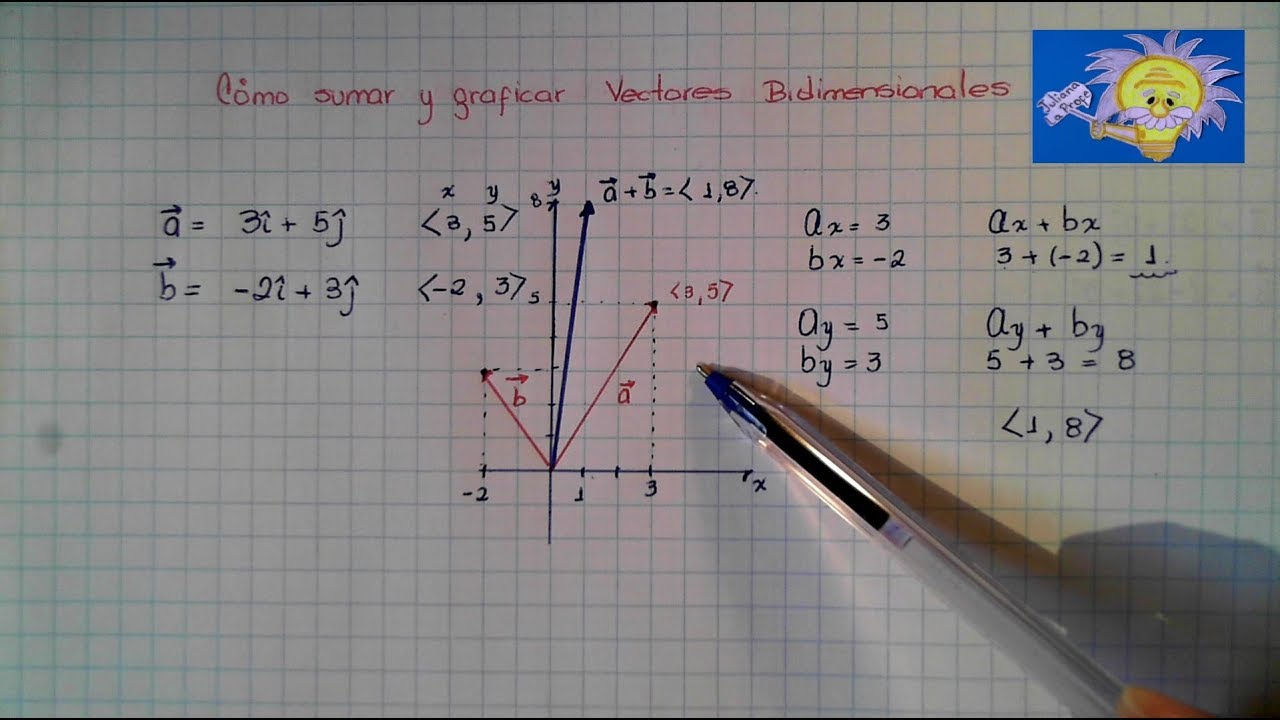 Cómo sumar y graficar Vectores Bidimensionales
Juliana
La Profe
a⃗ = 3î + 5ĵ
x y
<3, 5>
b⃗ = -2î + 3ĵ
<-2, 3>
y
8
a⃗ + b⃗ = <1,8>.
5
<3,5>
b⃗
a⃗
-2
1
3
x
ax = 3
bx = -2
ax + bx
3 + (-2) = 1.
ay = 5
by = 3
ay + by
5 + 3 = 8
<1, 8>